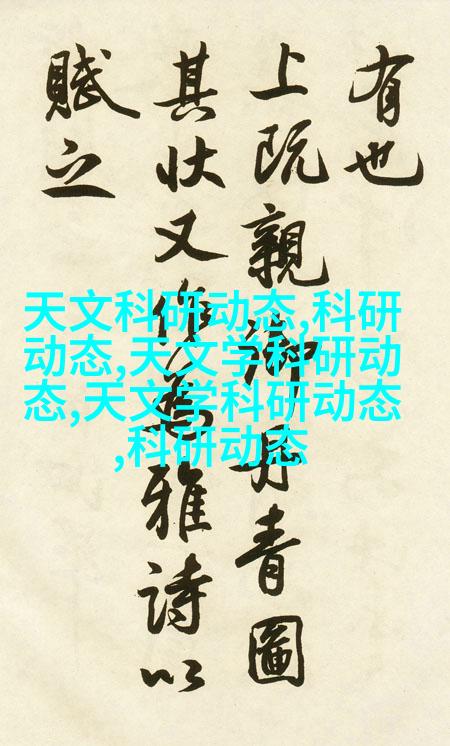 有也
上既親御丹青圖
其状又作為雅詩以
賦之
天文科研动态,科研
动态,天文学科研动
态,天文学科研动态
,科研动态